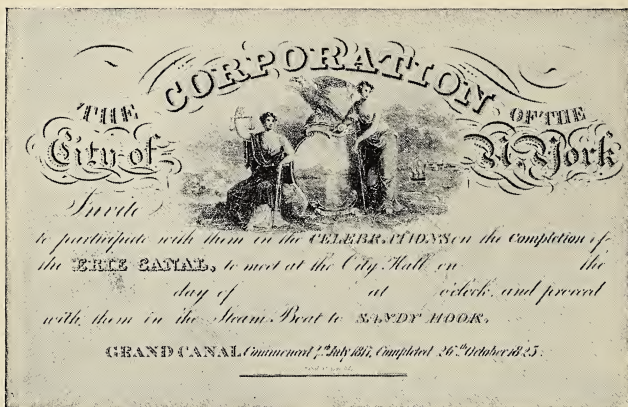 THE CORPORATION OF THE
City of N. York
Invite
to participate with them in the CELEBRATIONS on the Completion of
the ERIE CANAL, to meet at the City Hall on the
day of at o'clock, and proceed
with them in the Steam Boat to SANDY HOOK.
GRAND CANAL Commenced 4th July 1817, Completed 26th October 1825.